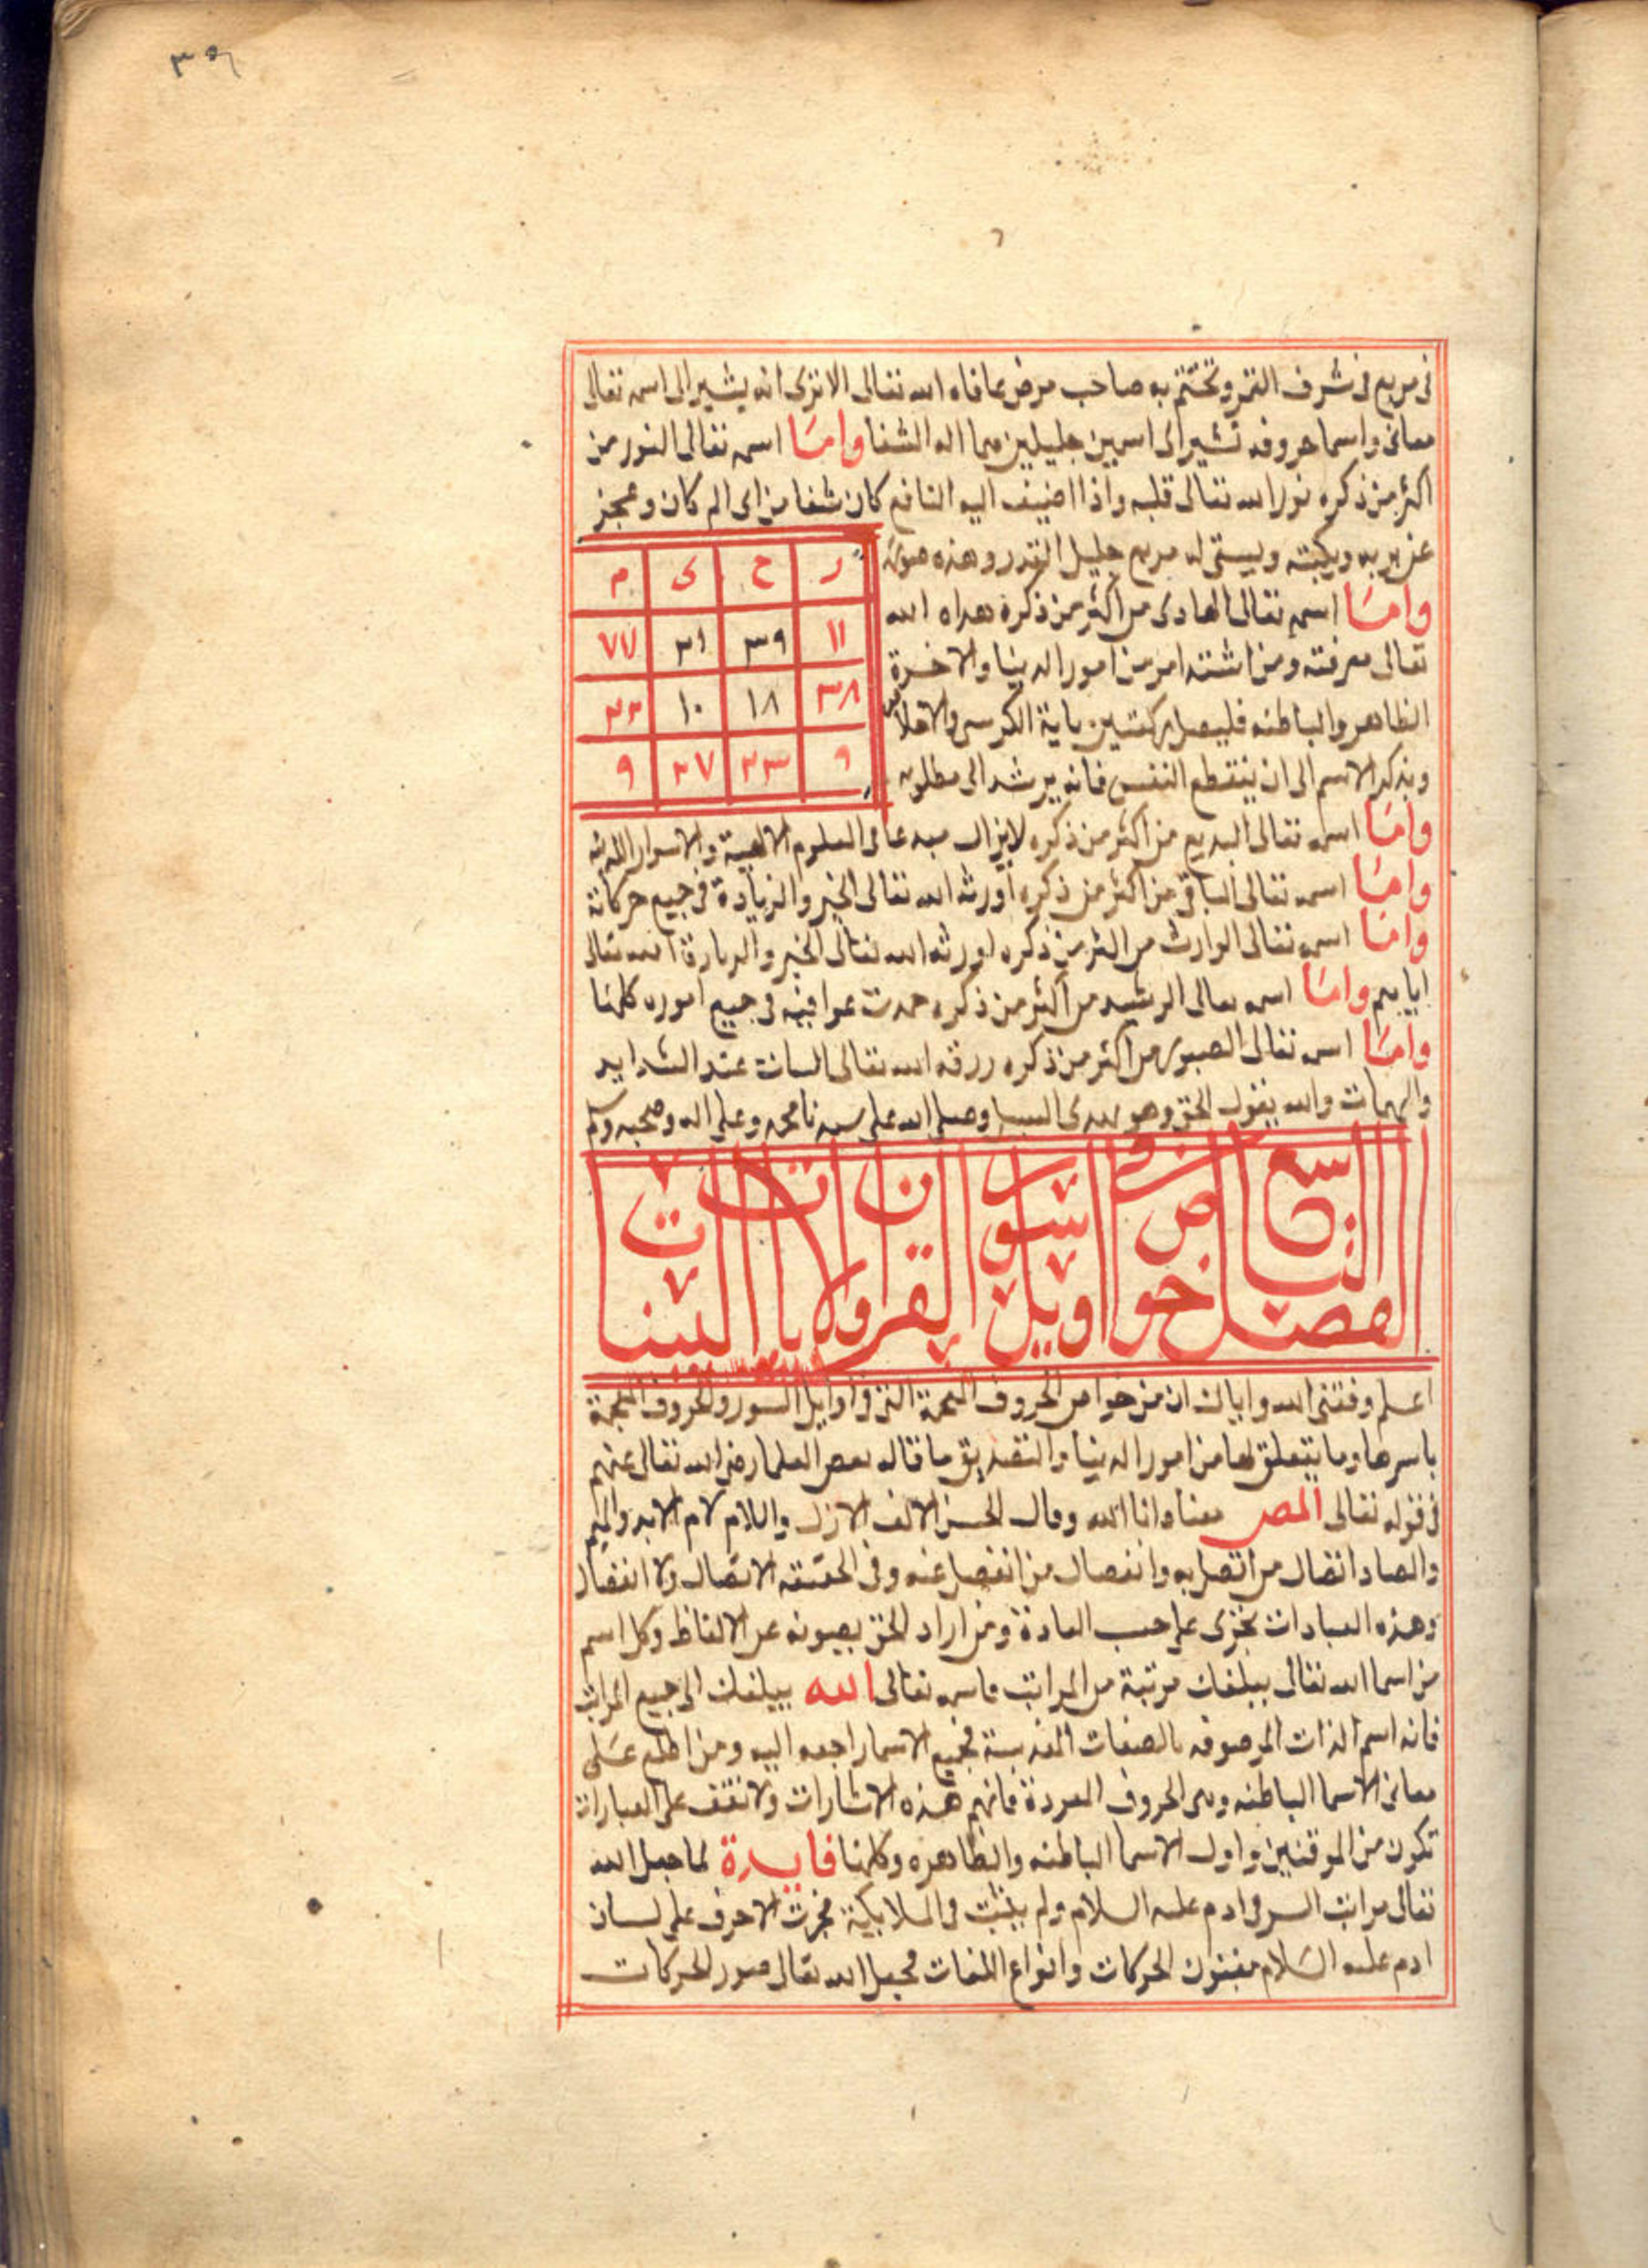 ٣٥٦
في مربع في شرف القمر وتختم به صاحب مرض عافاه الله تعالى الا ترى انه يشير الى اسمه تعالى
معانى واسما حروفه تشير الى اسمين جليلين هما اله الشفا وامّا اسمه تعالى النور من
اكثر من ذكره نور الله تعالى قلبه واذا اضيف اليه النافع كان شفا من اى الم كان وعجز
مربع جليل القدر وهذه صورته
ر ح ى م
١١ ٣٩ ٢١ ٧٧
٣٨ ١٨ ١٠ ٢٢
٩ ٢٣ ٢٧ ٩
وامّا اسمه تعالى الهادى من اكثر من ذكره هداه الله
تعالى معرفته ومن امر من امور الدينا والاخرة
الظاهر والباطنه فليصل ركعتين باية الكرسى والاخلاص
ويذكر الاسم الى ان ينقطع النفس فانه يرشد الى مطلوبه
وامّا اسمه تعالى البديع من اكثر من ذكره لايزال مبدعا فى العلوم الالهية والاسرار
وامّا اسمه تعالى الباقى من اكثر من ذكره اورثه الله تعالى الخير والزيادة فى جميع حركاته
وامّا اسمه تعالى الوارث من اكثر من ذكره اورثه الله تعالى الخير الله تعالى
وامّا اسمه تعالى الرشيد من اكثر من ذكره حمدت عواقبه فى جميع اموره كلها
وامّا اسمه تعالى الصبور من اكثر من ذكره رزقه الله تعالى الثبات عند الشدايد
والمهمات والله يقول الحق وهو يهدى السبيل وصلى الله على سيدنا محمد وعلى اله وصحبه وسلم
الفصل التاسع في خواص اويل سور القران والايات البينات
اعلم وفقنى الله واياك ان من خواص الحروف المعجمة التى فى اوايل السور والحروف المعجمة
باسرها وما يتعلق بها من امور الدينا والتصديق ما قاله بعض العلما رضى الله تعالى عنهم
فى قوله تعالى المص معناه انا الله وقال الحسن الالف الازل واللام لام الابد والميم
والصاد اتصال من اتصل به وانفصال من انفصل عنه وفى الحقيقه لا اتصال ولا انفصال
وهذه العبادات تجرى على حسب العادة ومن اراد الحق بصونه عن الالفاظ وكل اسم
من اسما الله تعالى يبلغك مرتبة من المراتب فاسمه تعالى الله يبلغك الى جميع المراتب
فانه اسم الذات الموصوفه بالصفات المقدسة فجميع الاسما راجعه اليه ومن اطلع عَلَى
معانى الاسما الباطنه وهى الحروف المفردة فافهم هذه الاشارات ولا تقف على العبارات
تكون من الموقنين واول الاسما الباطنه والظاهره وكلها فايدة لما جعل الله
تعالى مراتب السر فى ادم عليه السلام ولم يثبت فى الملايكة فجرت الاحرف على لسان
ادم عليه السلام بفنون الحركات وانواع اللغات فجعل الله تعالى صور الحركات